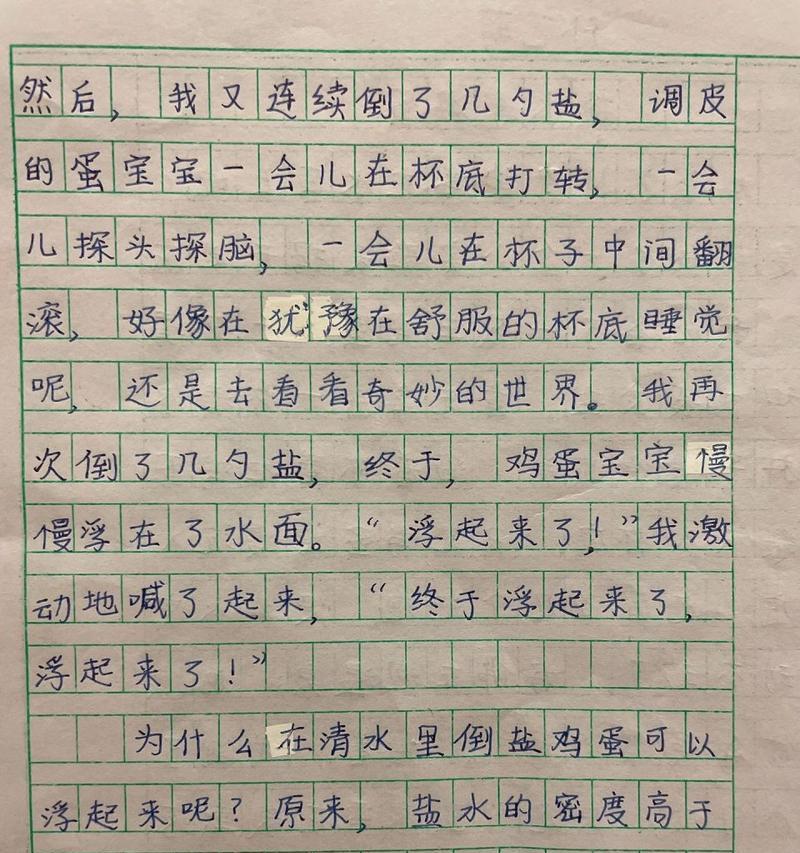 然后，我又连续倒了几勺盐，调皮
的蛋宝宝一会儿在杯底打转，一会
儿探头探脑，一会儿在杯子中间翻
滚，好像在犹豫在舒服的杯底睡觉
呢，还是去看看奇妙的世界。我再
次倒了几勺盐，终于，鸡蛋宝宝慢
慢浮在了水面。“浮起来了，！”我激
动地喊了起来，“终于浮起来了，
浮起来了！”
为什么在清水里倒盐鸡蛋可以
浮起来呢？原来，盐水的密度高于